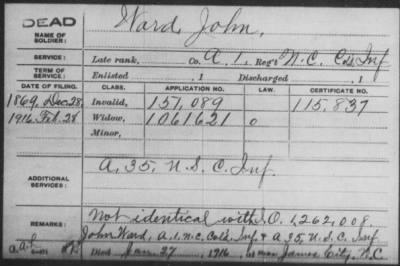 DEAD
NAME OF SOLDIER: Ward, John,
SERVICE: Late rank, Co. A, 1, Reg't N.C. Cold Inf
TERM OF SERVICE: Enlisted , 1 Discharged , 1
DATE OF FILING. CLASS. APPLICATION NO. LAW. CERTIFICATE NO.
1869, Dec. 28, Invalid, 151,089 115,837
1916 Feb. 28 Widow, 1061621 o
Minor,
ADDITIONAL SERVICES: A, 35, U.S.C. Inf.
REMARKS: Not identical with S.O. 1,262,008,
John Ward, A, 1, N.C. Cold. Inf. & A 35, U.S.C. Inf
Died Jan. 27, 1916, James City, N.C